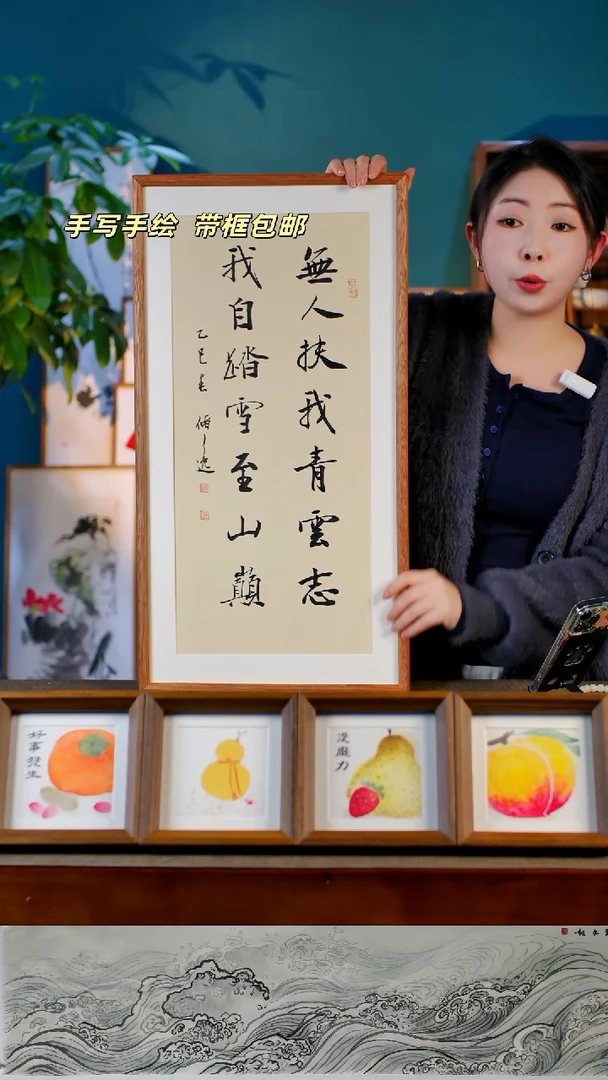 手写手绘 带框包邮
無人扶我青雲志
我自踏雪至山巔
乙巳春
好事發生
沒壓力